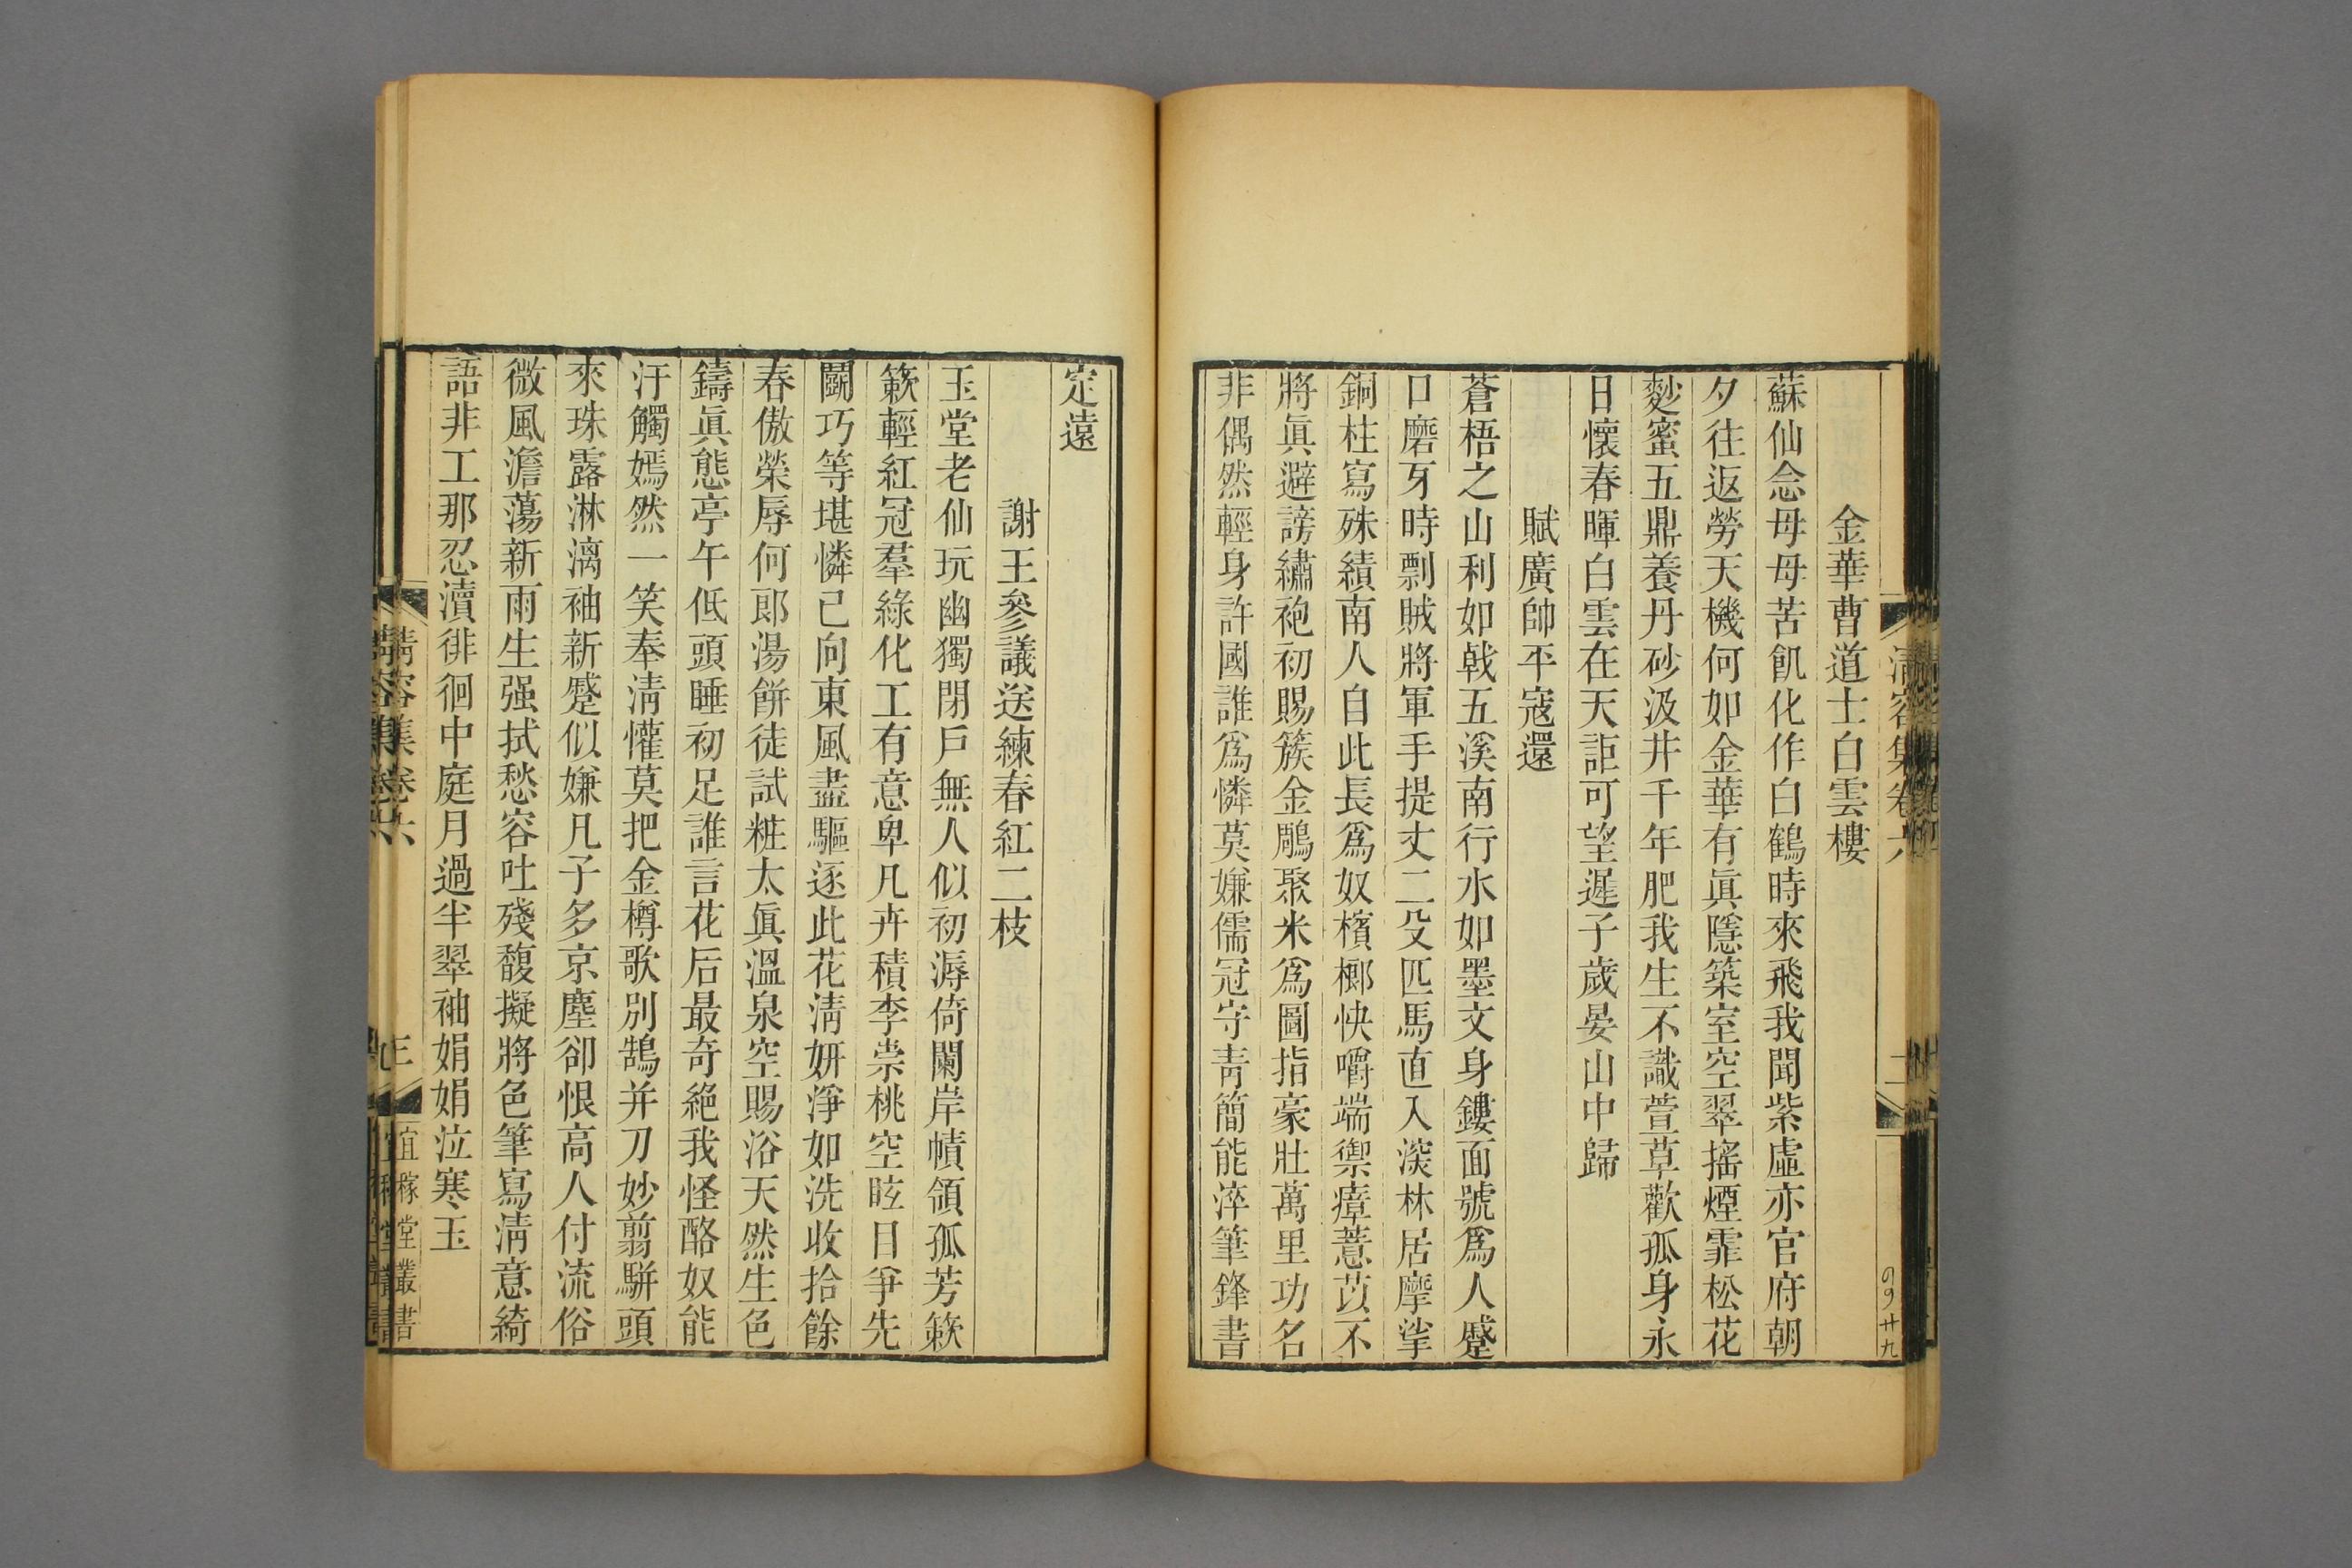 清容集卷六
二
金華曹道士白雲樓
蘇仙念母母苦飢化作白鶴時來飛我聞紫虛亦官府朝
夕往返勞天機何如金華有眞隱築室空翠搖煙霏松花
麨蜜五鼎養丹砂汲井千年肥我生不識萱草歡孤身永
日懷春暉白雲在天詎可望遲子歲晏山中歸
賦廣帥平寇還
蒼梧之山利如戟五溪南行水如墨文身鏤面號爲人蹙
口磨牙時剽賊將軍手提丈二殳匹馬直入深林居摩挲
銅柱寫殊績南人自此長爲奴檳榔快嚼端禦瘴薏苡不
將眞避謗繡袍初賜簇金鵰聚米爲圖指豪壯萬里功名
非偶然輕身許國誰爲憐莫嫌儒冠守青簡能淬筆鋒書
定遠
謝王參議送練春紅二枝
玉堂老仙玩幽獨閉戶無人似初溽倚闌岸幘領孤芳簌
簌輕紅冠羣綠化工有意卑凡卉積李崇桃空眩日爭先
鬭巧等堪憐已向東風盡驅逐此花淸妍淨如洗收拾餘
春傲榮辱何郎湯餅徒試粧太眞溫泉空賜浴天然生色
鑄眞態亭午低頭睡初足誰言花后最奇絕我怪酪奴能
汙觸嫣然一笑奉淸懽莫把金樽歌別鵠并刀妙翦駢頭
來珠露淋漓袖新蹙似嫌凡子多京塵卻恨高人付流俗
微風澹蕩新雨生强拭愁容吐殘馥擬將色筆寫淸意綺
語非工那忍瀆徘徊中庭月過半翠袖娟娟泣寒玉
清容集卷六
三
宜稼堂叢書